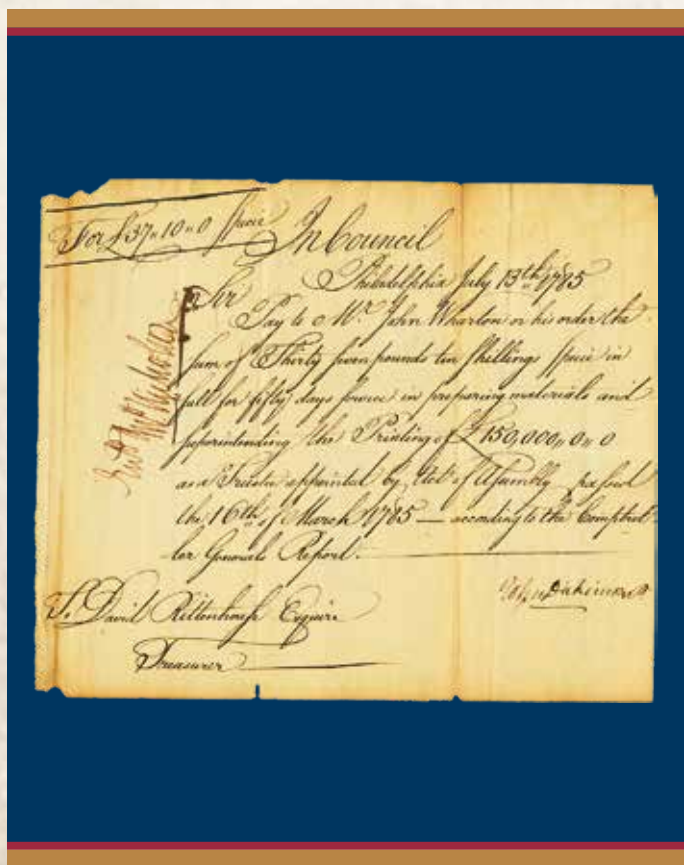 For £37〃10〃0 Specie
In Council
Philadelphia July 13th 1785
Sir
Pay to Mr. John Wharton or his order the
sum of Thirty seven pounds ten Shillings Specie in
full for fifty days service in preparing materials and
superintending the Printing of £150,000〃0〃0
as a Trustee appointed by Act of Assembly passed
the 16th of March 1785 — according to the Comptrol-
ler Generals Report.
John Dickinson
To David Rittenhouse Esquire
Treasurer
Jno Nicholson